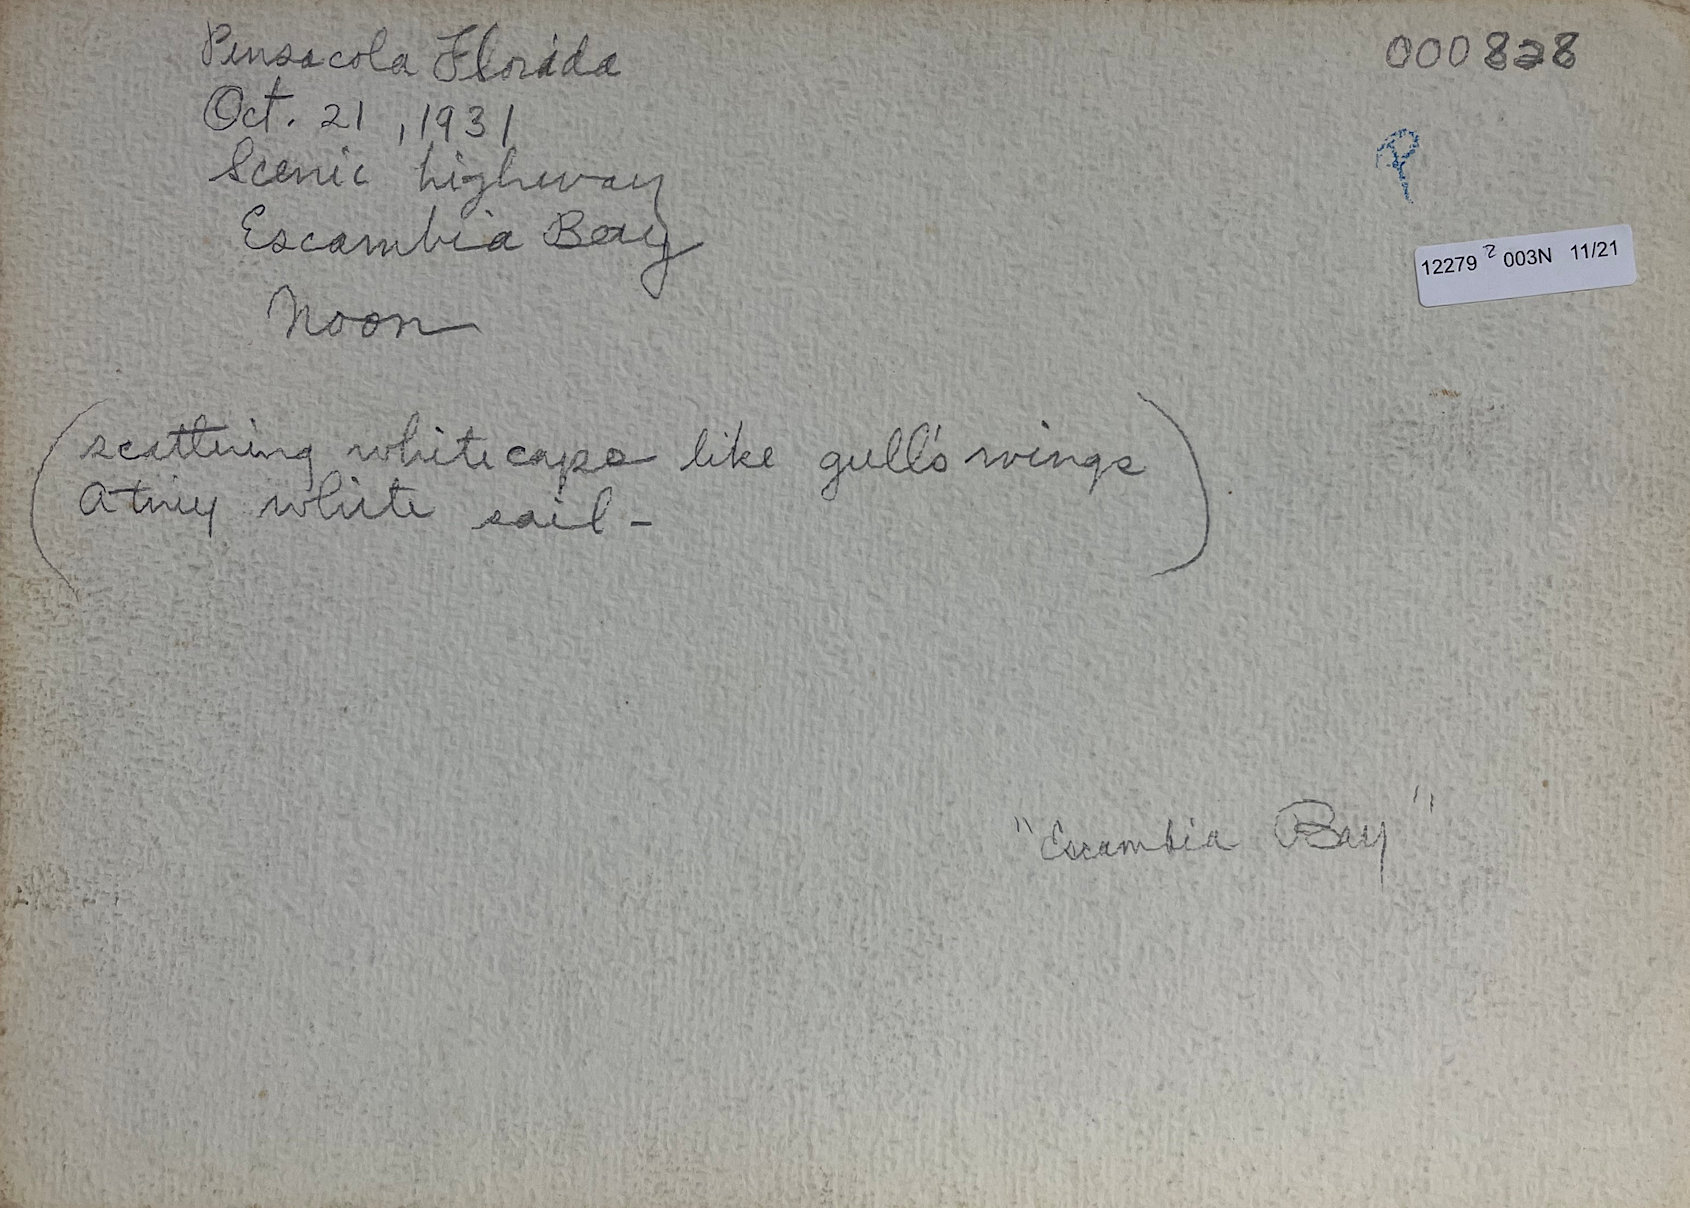 Pensacola Florida
Oct. 21, 1931
Scenic highway
Escambia Bay
Noon
000828
12279 2 003N 11/21
(scattering whitecaps like gull's wings
A tiny white sail -)
"Escambia Bay"